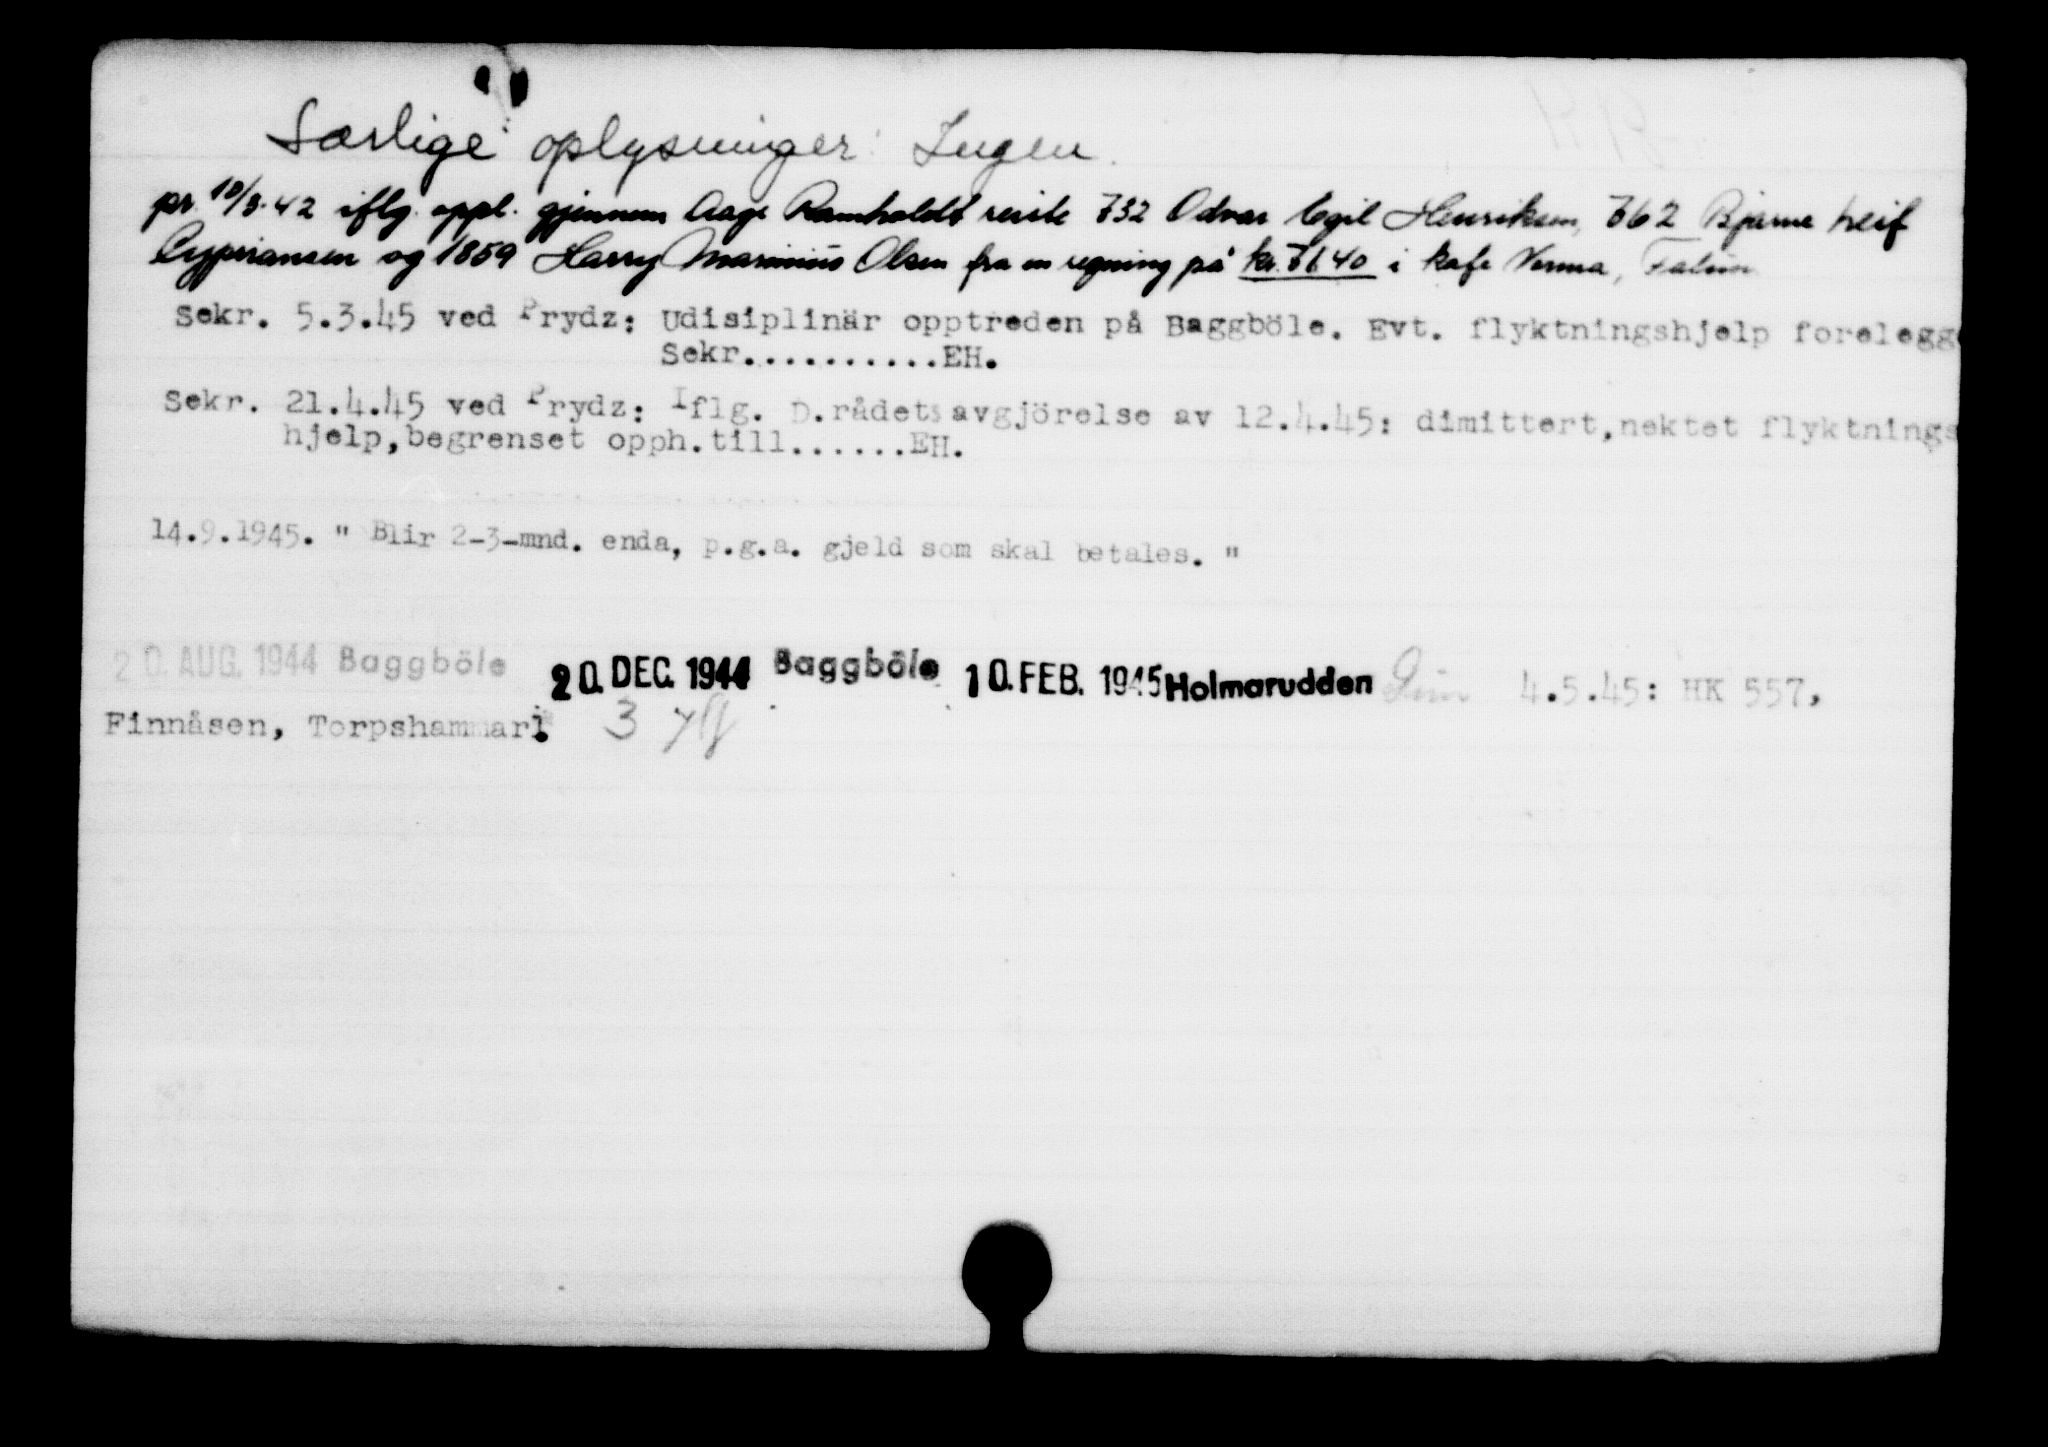 Særlige oplysninger: Ingen.
pr. 10/3-42 iflg. oppl. gjennem Aage Ramholdt reiste 732 Odvar Egil Henriksen, 762 Bjarne Leif
Cypriansen og 1859 Harry Marinius Olsen fra en regning på kr. 76.40 i kafe Norma, Falun
Sekr. 5.3.45 ved Prydz: Udisiplinär opptreden på Baggböle. Evt. flyktningshjelp forelegg
Sekr..........EH.
Sekr. 21.4.45 ved Prydz: Iflg. D.rådets avgjörelse av 12.4.45: dimittert,nektet flyktnings
hjelp,begrenset opph.till......EH.
14.9.1945. " Blir 2-3-mnd. enda, p.g.a. gjeld som skal betales. "
20. AUG. 1944 Baggböle 20. DEC. 1944 Baggböle 10. FEB. 1945 Holmarudden Dim 4.5.45: HK 557,
Finnåsen, Torpshammar. 3